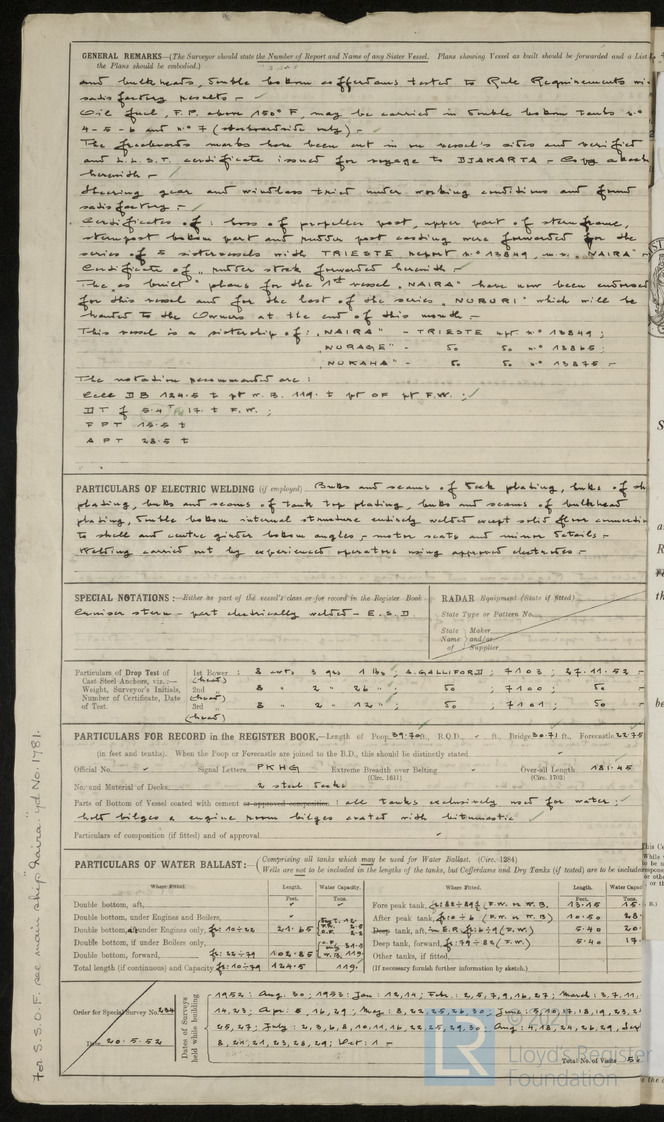 GENERAL REMARKS—(The Surveyor should state the Number of Report and Name of any Sister Vessel. Plans showing Vessel as built should be forwarded and a List
the Plans should be embodied.)
and bulkheads, double bottom cofferdams tested to Rule Requirements
satisfactory results -
Oil fuel, F.P. above 150° F, may be carried in double bottom tanks n.o
4-5-6 and n.o 7 (starboardside only) -
The freeboards marks have been cut in on vessel's sides and verified
and L.L.S.T. certificate issued for voyage to DJAKARTA - Copy attach
herewith -
Steering gear and windlass tried under working conditions and found
satisfactory -
Certificates of: boss of propeller post, upper part of sternframe,
sternpost bottom part and rudder post casting were forwarded for the
series of 5 sistervessels with TRIESTE report n.o 13849, m.s. "NAIRA"
Certificate of rudder stock forwarded herewith -
The "as built" plans for the 1st vessel "NAIRA" have now been endorsed
for this vessel and for the last of the series "NUBURI" which will be
handed to the Owners at the end of this month -
This vessel is a sistership of: "NAIRA" - TRIESTE rpt n.o 13849;
"NURAGE" - do do n.o 13865;
"NUKAHA" - do do n.o 13875 -
The notation recommended are:
Cell DB 124.5 t pt W.B. 119. t pt OF pt F.W.;
DT f 5.4 17. t F.W.;
FPT 15.5 t
APT 28.5 t
PARTICULARS OF ELECTRIC WELDING (if employed) Butts and seams of deck plating, butts of sh
plating, butts and seams of tank top plating, butts and seams of bulkhead
plating, double bottom internal structure entirely welded except solid floor connection
to shell and centre girder bottom angles - motor seats and minor details -
Welding carried out by experienced operators using approved electrodes -
SPECIAL NOTATIONS:—Either as part of the vessel's class or for record in the Register Book
Cruiser stern - part electrically welded - E.S.D
RADAR Equipment (State if fitted)
State Type or Pattern No.
State Name of
Maker and/or Supplier
Particulars of Drop Test of Cast Steel Anchors, viz.:—
Weight, Surveyor's Initials, Number of Certificate, Date of Test.
1st Bower (head) : 8 cwts 3 qrs 1 lbs; A. GALLIFORD; 7103; 27.11.52 -
2nd " (head) 8 " 2 " 26 " ; do ; 7100 ; do -
3rd " (head) 8 " 2 " 12 " ; do ; 7101 ; do -
PARTICULARS FOR RECORD in the REGISTER BOOK.—Length of Poop 39.70 ft., R.Q.D. ft., Bridge 30.71 ft., Forecastle 22.75
(in feet and tenths). When the Poop or Forecastle are joined to the B.D., this should be distinctly stated
Official No. Signal Letters PKHG Extreme Breadth over Belting (Circ. 1611) Over-all Length (Circ. 1703) 181.45
No. and Material of Decks 2 steel decks
Parts of Bottom of Vessel coated with cement or approved composition: all tanks exclusively used for water:
hold bilges & engine room bilges coated with bitumastic
Particulars of composition (if fitted) and of approval
PARTICULARS OF WATER BALLAST:—(Comprising all tanks which may be used for Water Ballast. (Circ. 1284)
Wells are not to be included in the lengths of the tanks, but Cofferdams and Dry Tanks (if tested) are to be included
Where Fitted. Length. Feet. Water Capacity. Tons.
Double bottom, aft,
Double bottom, under Engines and Boilers,
Double bottom, under Engines only, fr: 10÷22 21.65
Double bottom, if under Boilers only,
Double bottom, forward, fr: 22÷79 102.85 W.B. 119
Total length (if continuous) and Capacity fr: 10÷79 124.5 119.
Where Fitted. Length. Feet. Water Capac
Fore peak tank, (F.W. or W.B. 13.15 15.
After peak tank, fr: 0÷6 (F.W. or W.B) 10.50 28.
Deep tank, aft, in E.R. fr: 6÷9 (F.W.) 5.40 20.
Deep tank, forward, fr: 79÷82 (F.W.) 5.40 17.
Other tanks, if fitted,
(If necessary furnish further information by sketch.)
Order for Special Survey No. 234
Date 20.5.52
Dates of Surveys held while building
1952: Aug. 30; 1953: Jan: 12,14; Feb.: 2,5,7,9,16,27; March: 3,7,11,
14,23; Apr: 8,16,29; May: 8,22,25,26,30; June: 5,10,17,18,19,23,2
25,27; July: 2,3,6,8,10,11,16,22,25,29,30; Aug: 4,18,24,26,29,
8,21,21,23,28,29; Oct: 1 -
Total No. of Visits
For S.S.O.F. see main ship "Naira" yd No. 1781.
© 2021
LR
Lloyd's Register
Foundation